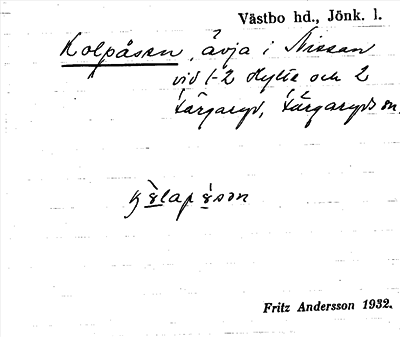 Västbo hd., Jönk. l.
Kolpåsen, åvja i Nissan
vid 1-2 Hylte och 2
Färgaryd, Färgaryds sn.
Fritz Andersson 1932.